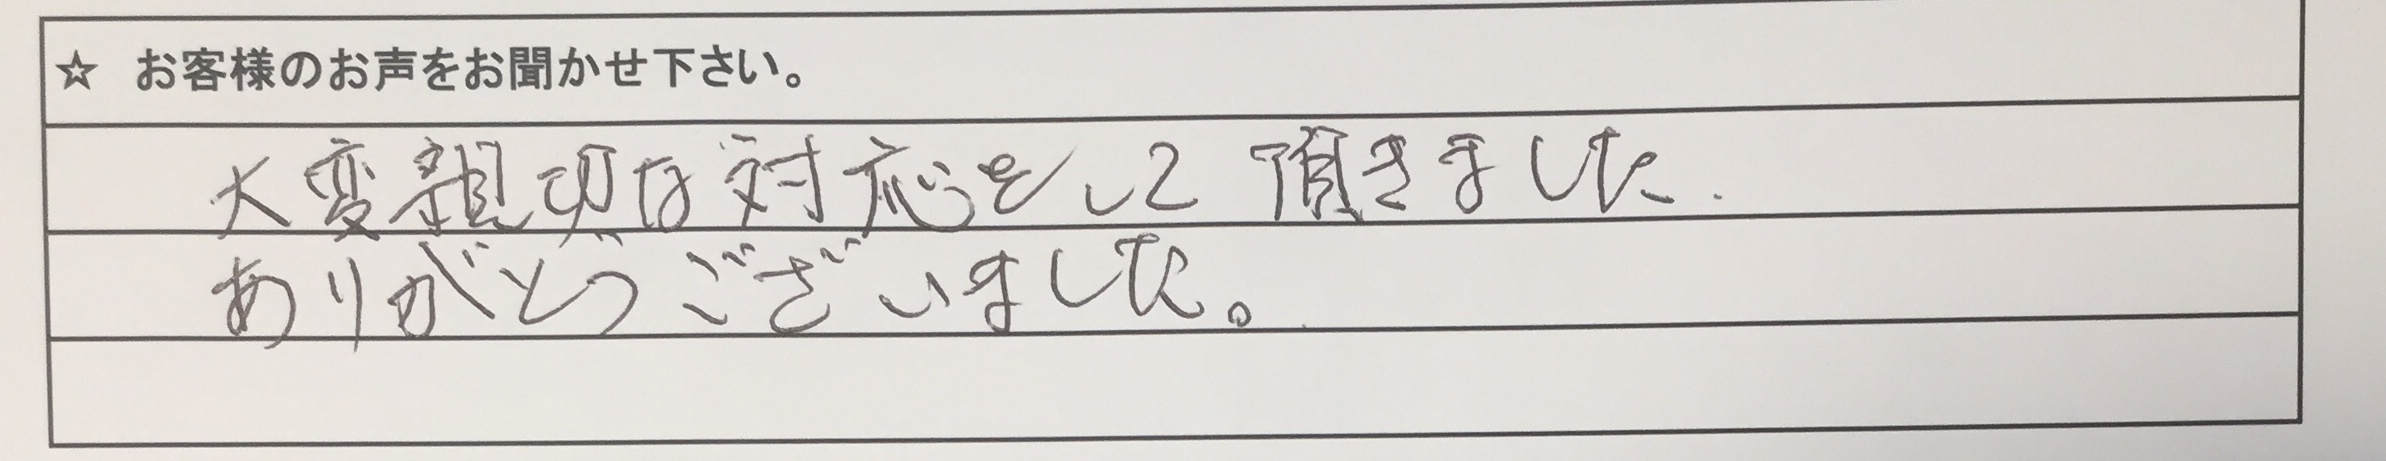 ☆ お客様のお声をお聞かせ下さい。
大変親切な対応をして頂きました.
ありがとうございました。